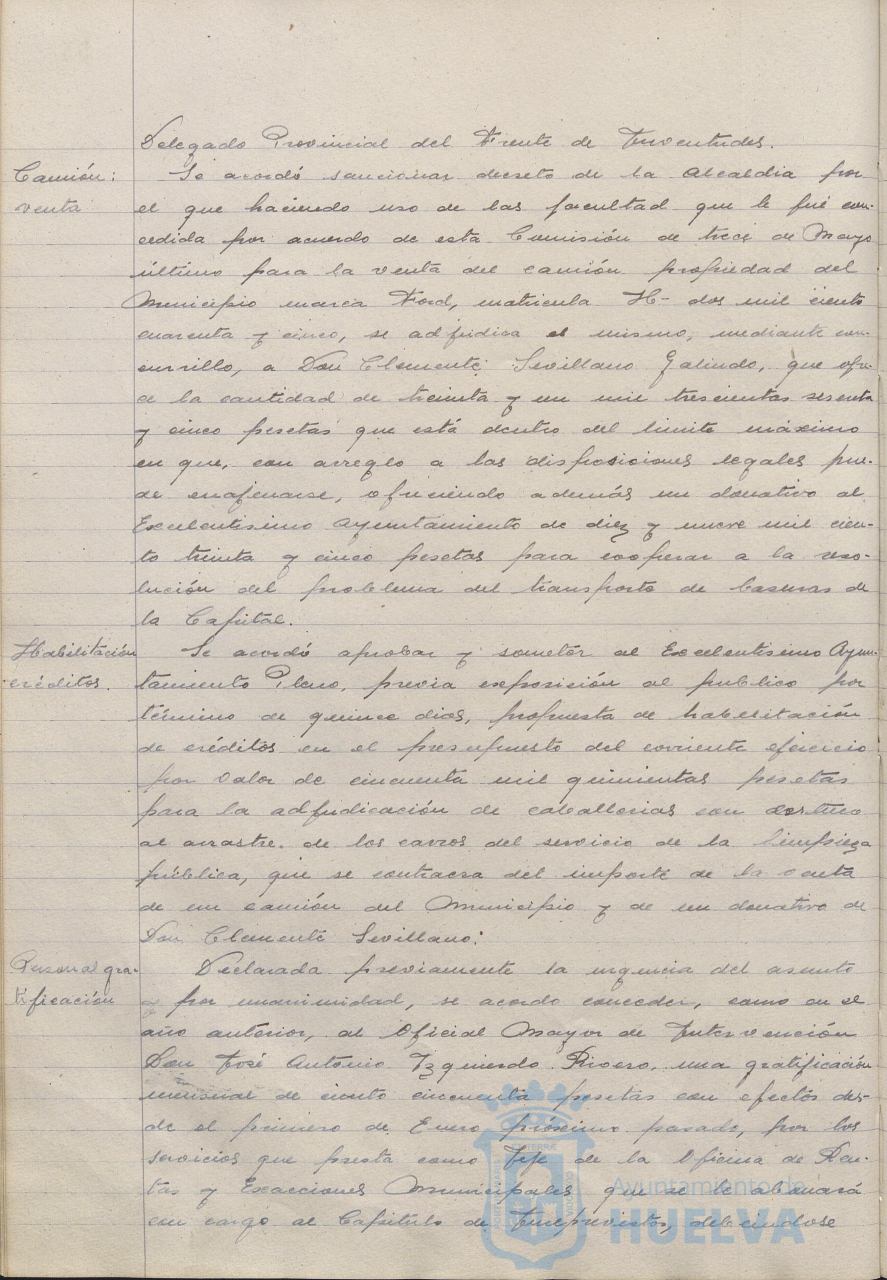 Delegado Provincial del Frente de Juventudes.
Camión: venta
Se acordó sancionar decreto de la Alcaldia por
el que haciendo uso de las facultad que le fué con-
cedida por acuerdo de esta Comisión de trece de Mayo
último para la venta del camión propiedad del
Municipio marca Ford, matricula H- dos mil ciento
cuarenta y cinco, se adjudica el mismo, mediante con-
cursillo, a Don Clemente Sevillano Galindo, que ofre-
ce la cantidad de treinta y un mil trescientas sesenta
y cinco pesetas que está dentro del limite máximo
en que, con arreglo a las disposiciones legales pue-
de enajenarse, ofreciendo además un donativo al
Excelentisimo Ayuntamiento de diez y nueve mil cien-
to treinta y cinco pesetas para cooperar a la reso-
lución del problema del transporte de basuras de
la Capital.
Habilitación créditos.
Se acordó aprobar y someter al Excelentisimo Ayun-
tamiento Pleno, previa exposición al publico por
término de quince dias, propuesta de habilitación
de créditos en el presupuesto del corriente ejercicio
por valor de cincuenta mil quinientas pesetas
para la adjudicación de caballerias con destino
al arrastre de los carros del servicio de la limpieza
pública, que se contraera del importe de la venta
de un camión del Municipio y de un donativo de
Don Clemente Sevillano.
Personal gra-
tificación
Declarada previamente la urgencia del asunto
y por unanimidad, se acordo conceder, como en el
año anterior, al Oficial Mayor de Intervención
Don José Antonio Izquierdo Rivero, una gratificación
mensual de ciento cincuenta pesetas con efectos des-
de el primero de Enero próximo pasado, por los
servicios que presta como Jefe de la Oficina de Ren-
tas y Exacciones Municipales que se le abonará
con cargo al Capitulo de Imprevistos, debiendose
Ayuntamiento de
HUELVA